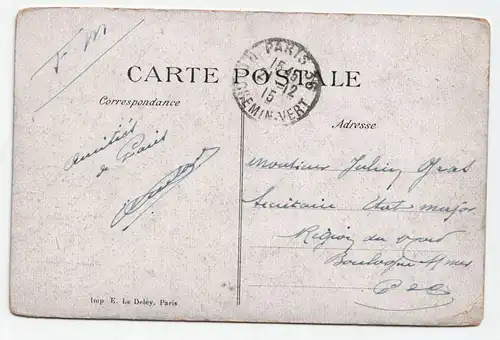 F. M
PARIS-56
R. DU CHEMIN-VERT
15 12
15
CARTE POSTALE
Correspondance
Adresse
Amitiés
de Paris
Monsieur Julien
Secrétaire Etat major
Région du Nord
Boulogne s mer
P d C
Imp E. Le Deley, Paris